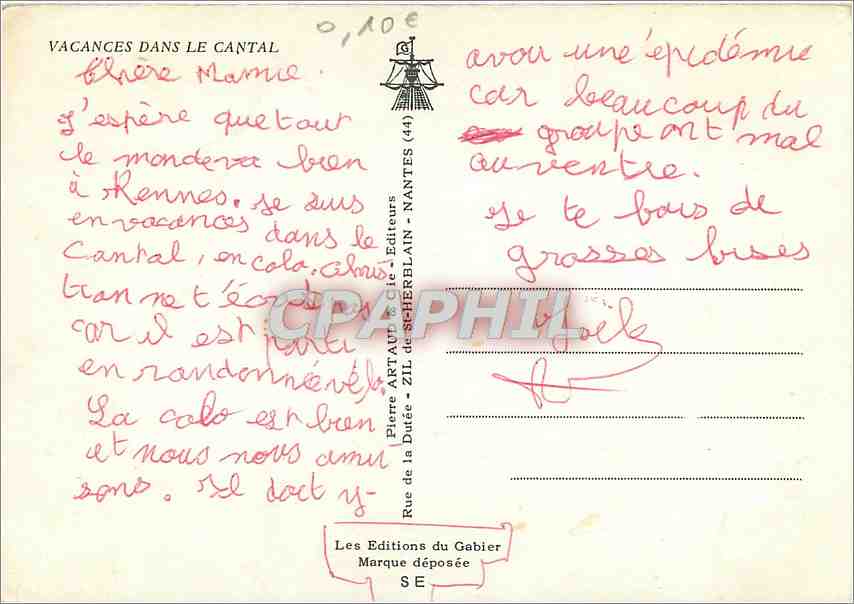 0,10€
VACANCES DANS LE CANTAL
Chère Mamie.
J'espère que tout
le monde va bien
à Rennes. Je suis
en vacances dans le
Cantal, en colo. Chris
tian ne t'écrit pas
car il est parti
en randonnée vélo.
La colo est bien
et nous nous amu
sons. Il doit y-
avoir une épidémie
car beaucoup du
groupe ont mal
au ventre.
Je te fais de
grosses bises
Joël
Pierre ARTAUD & Cie - Editeurs
Rue de la Dutée - ZIL de St-HERBLAIN - NANTES (44)
CPAPHIL
Les Editions du Gabier
Marque déposée
SE